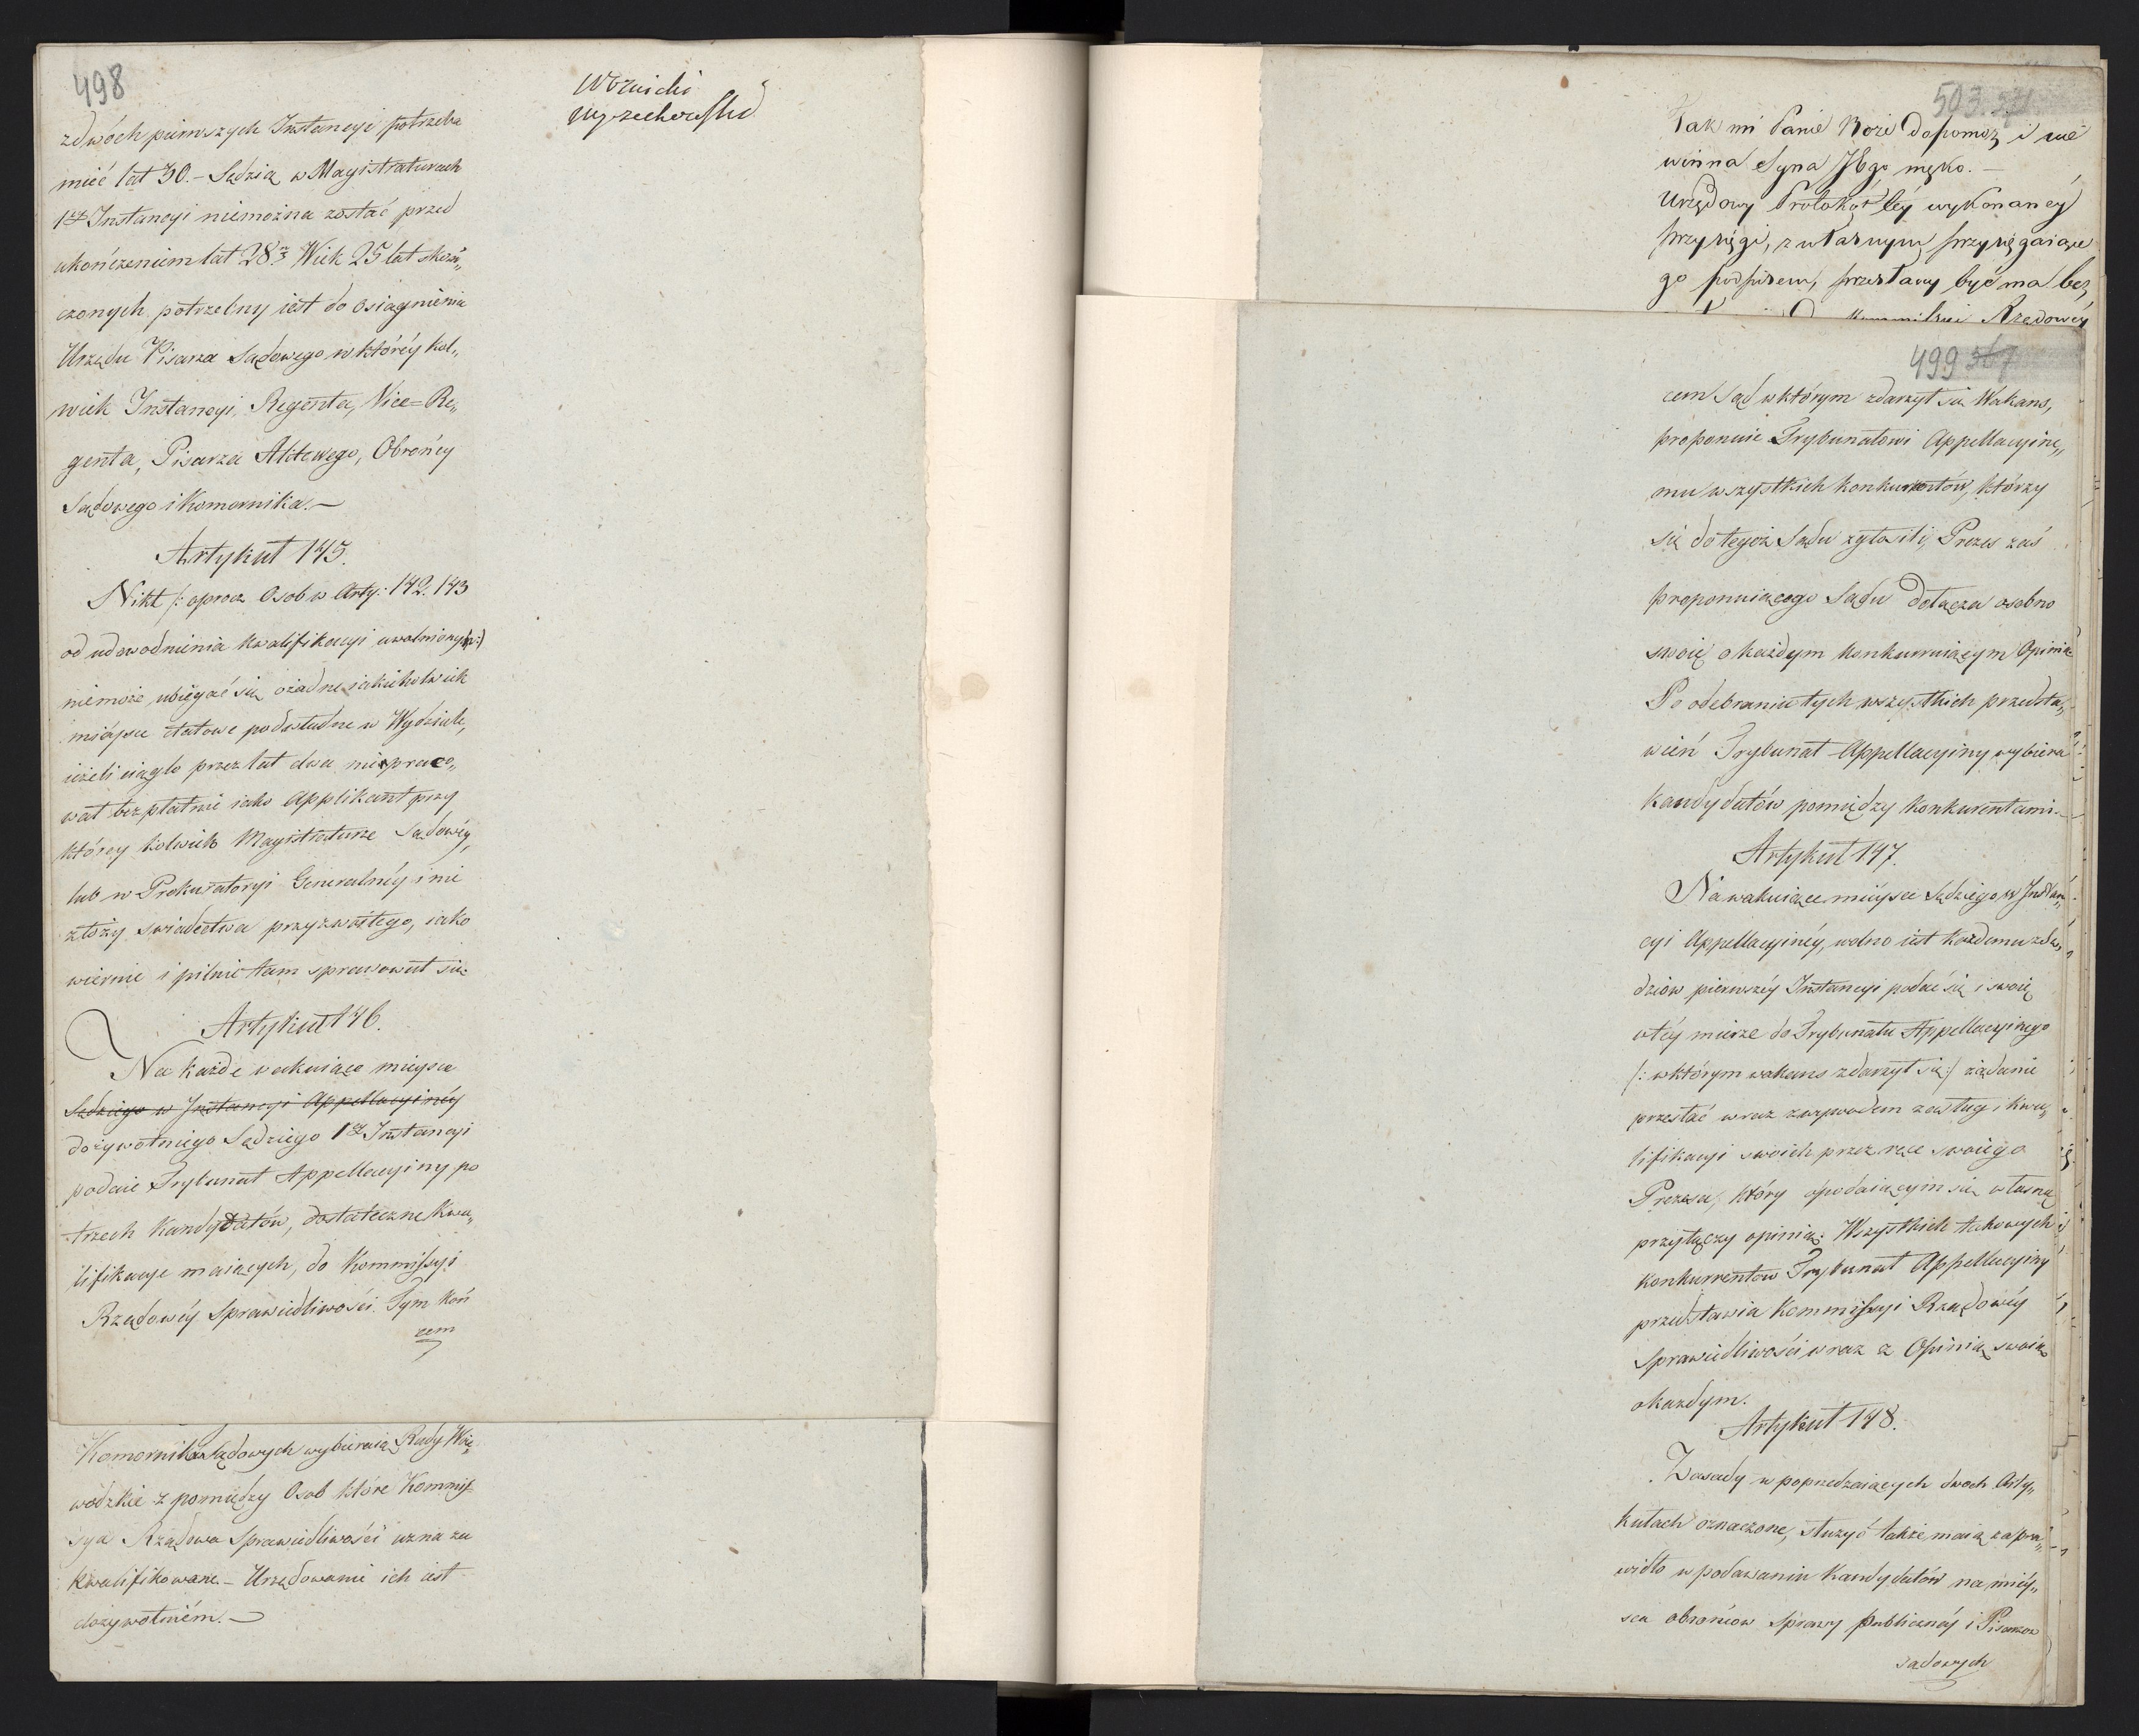 498
Woznicki
Wyzechowski
zdwóch pierwszych Instancyi potrzeba
mieć lat 30. – Sędzią w Magistraturach
1éy Instancyi niemożna zostać przed
ukończeniem lat 28m Wiek 25 lat skoń„
czonych potrzebny iest do osiągnienia
Urzędu Pisarza Sądowego w któréy kol„
wiek Instancyi, Regenta, Vice=Re„
genta, Pisarza Aktowego, Obrońcy
Sądowego i Komornika. —
Artykuł 145.
Nikt /: oprocz Osob w Arty: 142. 143
od udowodnienia kwalifikacyi uwolnionych :/
niemoże ubiegać się o żadne iakiekolwiek
mieysce etatowe podwładne w Wydziale,
ieżeli ciągle przez lat dwa nie praco„
wał bezpłatnie iako Applikant przy
którey kolwiek Magistraturze Sądowéy,
lub w Prokuratoryi Generalnéy i nie
złoży swiadectwa przyzwoitego, iako
wiernie i pilnie tam sprawował się.
Artykuł 146.
Na każde wakuiące mieysce
Sędziego w Instancyi Appellacyinéy
dożywotniego Sędziego 1éy Instancyi
podaie Trybunał Appellacyiny po
trzech Kandydatów, dostateczne kwa„
lifikacye maiących, do Kommissyi
Rządowéy Sprawiedliwości. Tym koń
cem
Komorników Sądowych wybieraią Rady Woie„
wódzkie z pomiędzy Osob które Kommis„
sya Rządowa Sprawiedliwości uzna za
kwalifikowane. – Urzędowanie ich iest
dożywotniém. —
503. 571
Tak mi Panie Boże dopomoż i nie
winna Syna Jego męko. —
Urzędowy Protokół téy wykonanéy
przysięgi, z własnym przysięgaiące
go podpisem, przesłany być ma bez
Kommissyi Rządowéy
499 567
cem Sąd w którym zdarzył się Wakans,
proponuie Trybunałowi Appellacyine„
mu wszystkich konkurentów, którzy
się do tegoż Sądu zgłosili, Prezes zaś
proponuiącego Sądu dołącza osobno
swoię o każdym konkurruiącym Opinię
Po odebraniu tych wszystkich przedsta„
wień Trybunał Appellacyiny wybiera
kandydatów pomiędzy konkurentami. –
Artykuł 147.
Na wakuiące mieysce Sędziego w Instan„
cyi Appellacyinéy, wolno iest każdemu z Sę„
dziow pierwszéy Instancyi podać się i swoię
w téy mierze do Trybunału Appellacyinego
/: w którym wakans zdarzył się :/ żądanie
przesłać wraz z wywodem zasług i kwa„
lifikacyi swoich przez ręce swoiego
Prezesa, który o podaiącym się własną
przyłączy opinią. Wszystkich takowych
konkurrentow Trybunał Appellacyiny
przedstawia Kommissyi Rządowéy
Sprawiedliwości wraz z Opinią swoią
o każdym.
Artykuł 148.
Zasady w poprzedzaiących dwoch Arty„
kułach oznaczone, służyć także maią za pra„
widło w podawaniu Kandydatów na miéy„
sca obrońcow Sprawy publicznéy i Pisarzow
sądowych